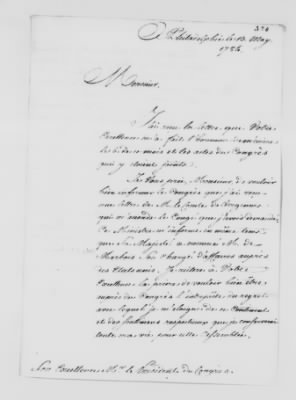 A Philadelphie le 13. May
1784.
Monsieur,
J'ai reçu la lettre que Votre
Excellence m'a fait l'honneur de m'écrire
le de ce mois et les actes du Congrès
qui y étoient joints.
Je vous prie, Monsieur, de vouloir
bien informer le Congrès que j'ai reçu
une lettre de M. le Comte de Vergennes
qui m'accorde le Congé que j'avois demandé.
Ce Ministre m'informe en même tems
que Sa Majesté a nommé M. de
Marbois son Chargé d'affaires auprès
des Etats unis. Je réitere à Votre
Excellence la priere de vouloir bien être
auprès du Congrès l'interprète du regret
avec lequel je m'éloigne de ce Continent
et des sentimens respectueux que je conserverai
toute ma vie pour cette assemblée.
Son Excellence Mr. le Président du Congrès.